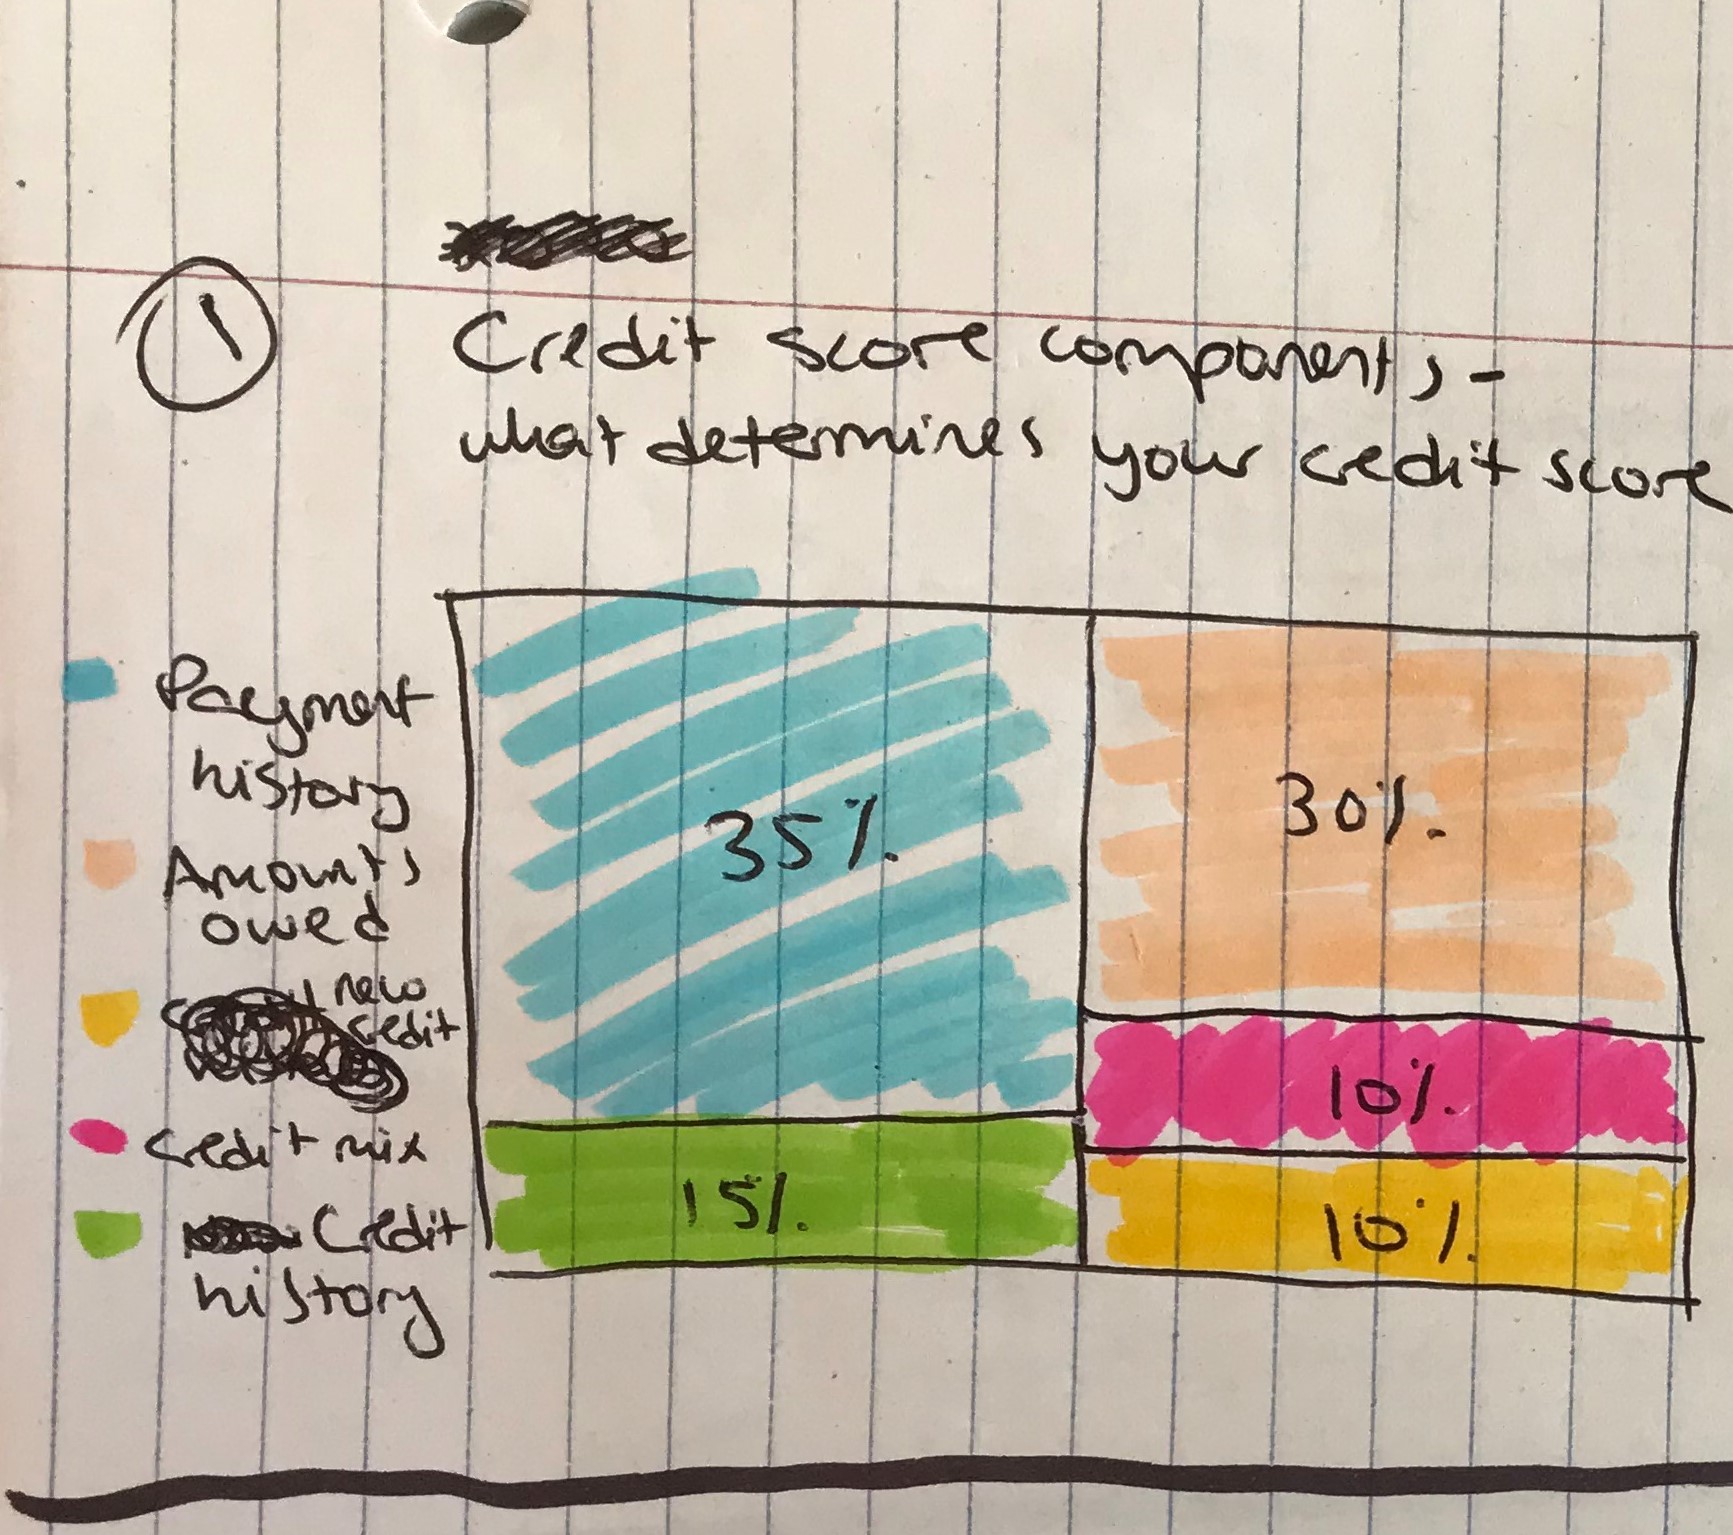 1
Credit score components -
what determines your credit score
Payment
history
Amounts
owed
new
credit
Credit mix
Credit
history
35%
30%
10%
15%
10%